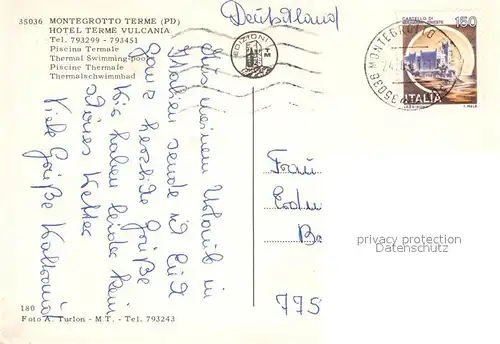 35036 MONTEGROTTO TERME (PD)
HOTEL TERME VULCANIA
Tel. 793299 - 793451
Piscina Termale
Thermal Swimming-pool
Piscine Thermale
Thermalschwimmbad
Deutschland
EDIZIONI
TM
CASTELLO DI
150
ITALIA
35036 MONTEGROTTO
Aus meinem Urlaub in
Italien sende ich Euch
ganz herzliche Grüße
Wir haben leider kein
schönes Wetter
Viele Grüße Waltraud
Frau
Erdm
Ba
775
privacy protection
(OldThing.de)
180
Foto A. Turlon - M.T. - Tel. 793243